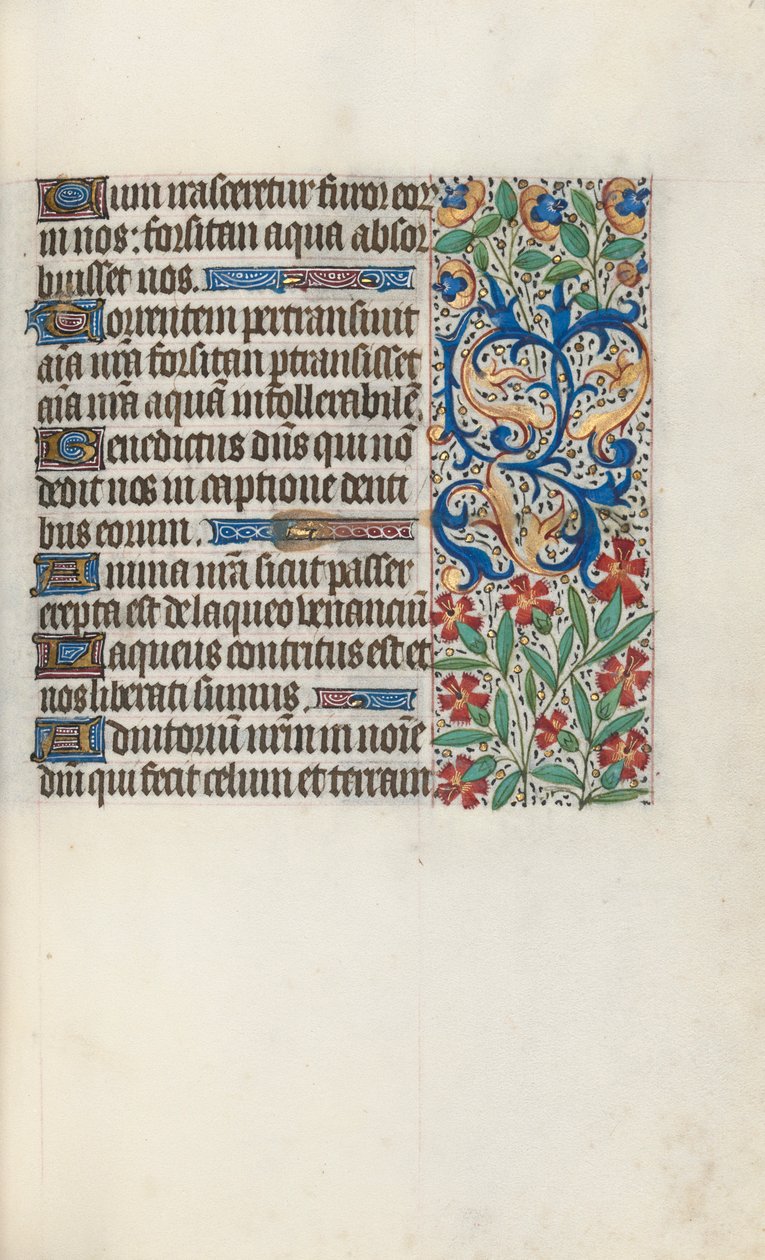 Cum irasceretur furor eor
in nos: forsitan aqua absor
buisset nos.
Torrentem pertransiuit
aīa nrā forsitan ꝑtransisset
aīa nrā aquā intollerabilē.
Benedictus dn̄s qui nō
dedit nos in captione denti
bus eorum.
Anima nrā sicut passer
erepta est de laqueo venanciū
Laqueus contritus est et
nos liberati sumus.
Adiutoriū nrm̄ in noīe
dn̄i qui fecit celum et terram